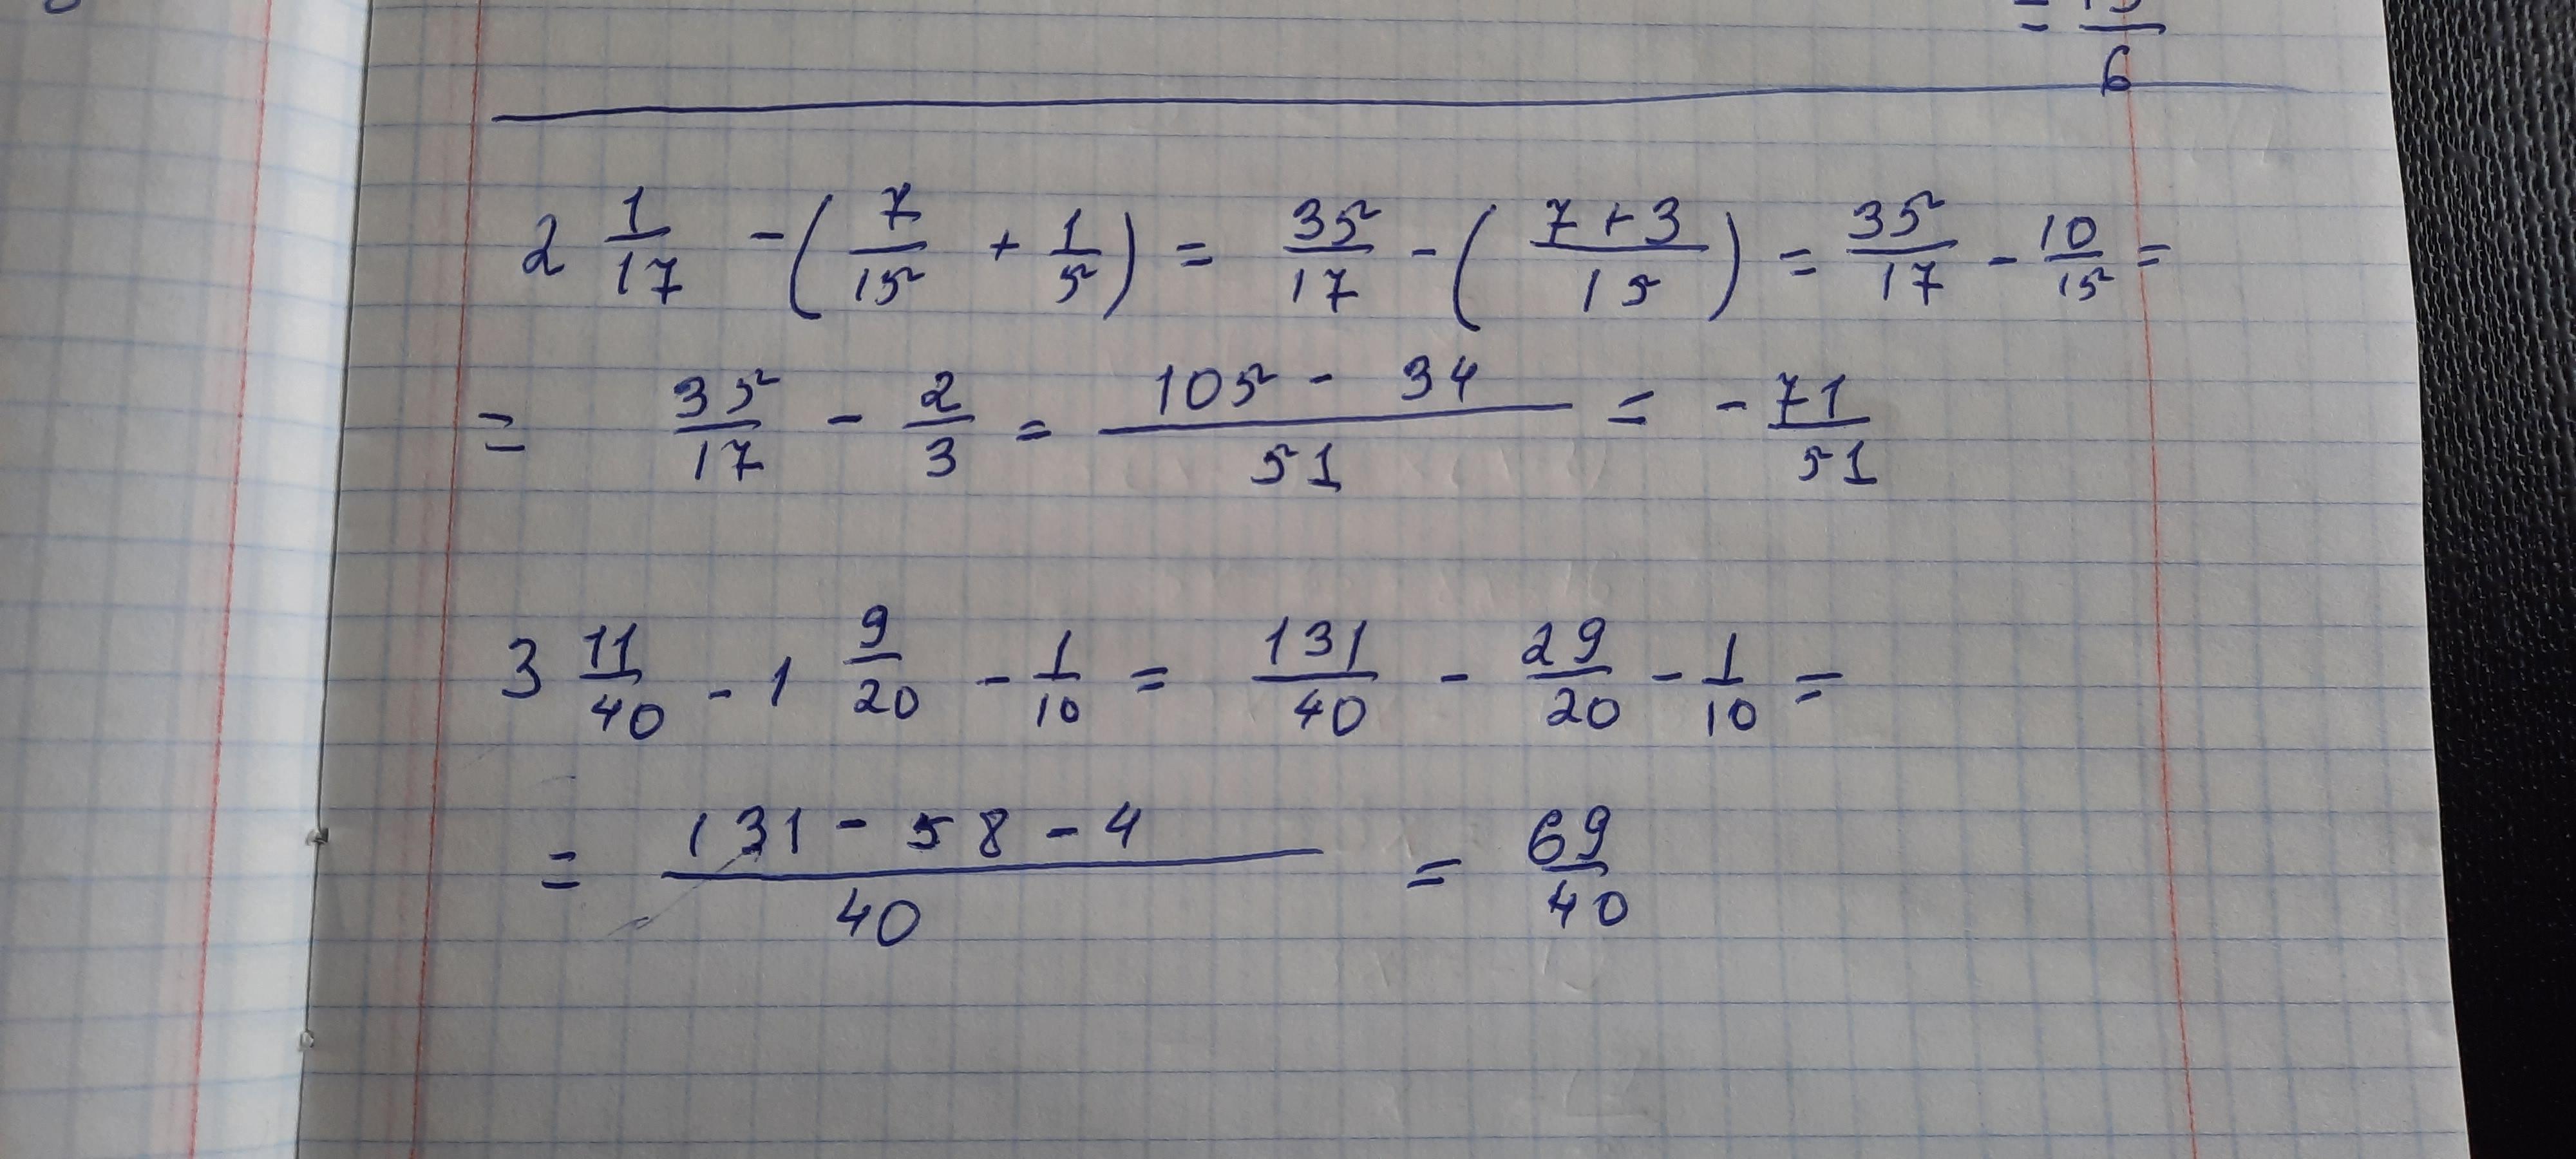 = /6
2 1/17 - (7/15 + 1/5) = 35/17 - ((7+3)/15) = 35/17 - 10/15 =
= 35/17 - 2/3 = (105 - 34)/51 = - 71/51
3 11/40 - 1 9/20 - 1/10 = 131/40 - 29/20 - 1/10 =
= (131 - 58 - 4)/40 = 69/40